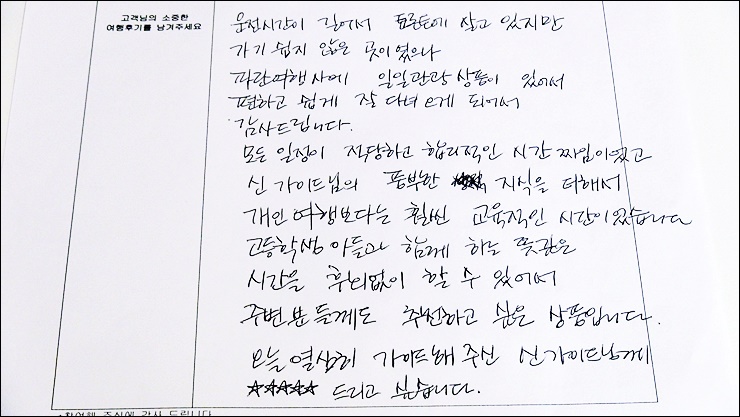 고객님의 소중한
여행후기를 남겨주세요
운전시간이 길어서 토론토에 살고 있지만
가기 쉽지 않은 곳이였으나
파란여행사에 일일관광 상품이 있어서
편하고 쉽게 잘 다녀오게 되어서
감사드립니다.
모든 일정이 적당하고 합리적인 시간 짜임이였고
신 가이드님의 풍부한 지식을 더해서
개인 여행보다는 훨씬 교육적인 시간이였습니다
고등학생 아들과 함께 하는 뜻깊은
시간을 후회없이 할 수 있어서
주변분들께도 추천하고 싶은 상품입니다.
오늘 열심히 가이드해 주신 신가이드님께
☆☆☆☆☆ 드리고 싶습니다.